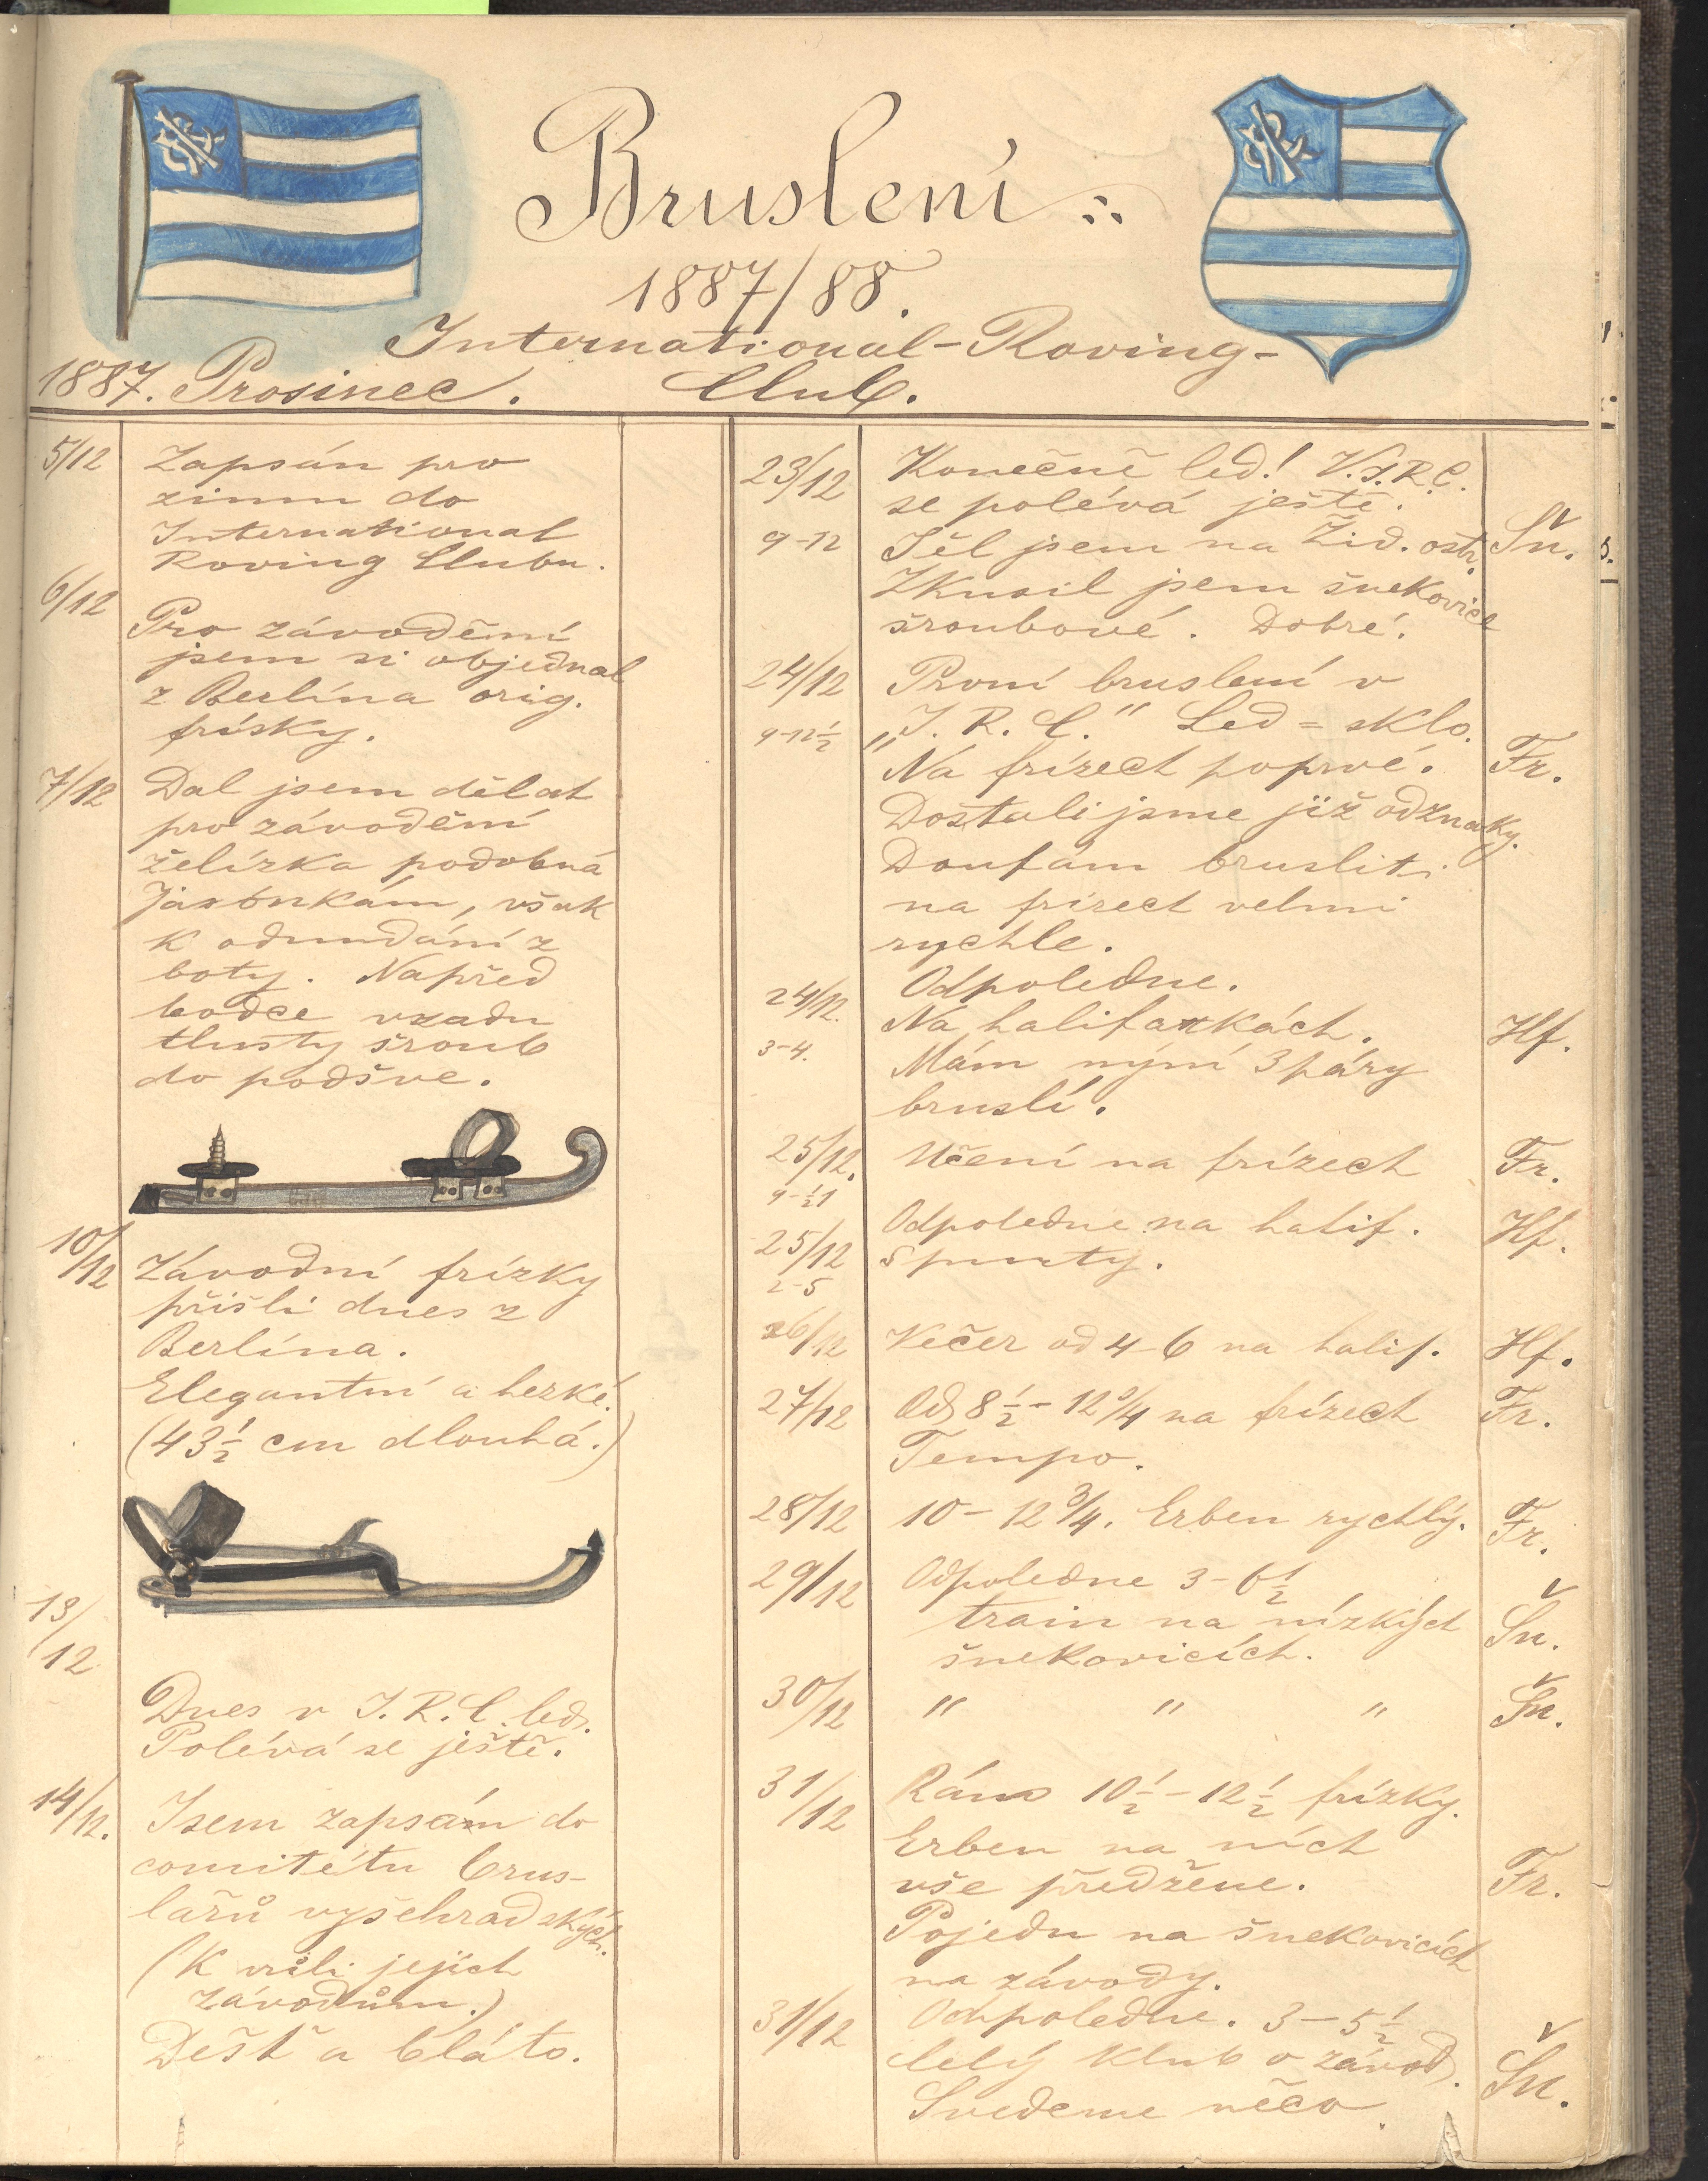 Bruslení
1887/88.
International-Roving-
Club.
1887. Prosinec.
5/12 Zapsán pro
zimu do
International
Roving Clubu.
6/12
Pro závodění
jsem si objednal
z Berlína orig.
frísky.
7/12 Dal jsem dělat
pro závodění
želízka podobná
Jacksnkám, však
k odundání z
boty. Napřed
bodce vzadu
tlustý šroub
do podšve.
10/12 Závodní frízky
přišli dnes z
Berlína.
Elegantní a hezké.
(43½ cm dlouhá.)
13/12
Dnes v I.R.C. led.
Polévá se ještě.
14/12. Jsem zapsán do
comitétu brus-
lařů vyšehradských.
(K vůli jejich
závodům.)
Déšť a bláto.
23/12 Konečně led! V I.R.C.
se polévá ještě.
9-12 Šel jsem na Žid. ostr. Šn.
Zkusil jsem šnekovice
šroubové. Dobré.
24/12 První bruslení v
9-12½ „I.R.C." Led = sklo.
Na frízech poprvé. Fr.
Dostali jsme již odznaky.
Doufám bruslit
na frízech velmi
rychle.
Odpoledne.
24/12. Na halifaxkách. Hf.
3-4. Mám nýní 3 páry
bruslí.
25/12. Učení na frízech Fr.
9-½1
25/12 Odpoledne na halif. Hf.
2-5 spurty.
26/12 Večer od 4-6 na halif. Hf.
27/12 Od 8½-12¾ na frízech Fr.
Tempo.
28/12 10-12¾. Erben rychlý. Fr.
29/12 Odpoledne 3-6½
train na nízkých Šn.
šnekovicích.
30/12 " " " Šn.
31/12 Ráno 10½-12½ frízky.
Erben na ních
vše předžene. Fr.
Pojedu na šnekovicích
na závody.
31/12 Odpoledne. 3-5½
Celý klub o závod. Šn.
Svedeme něco.